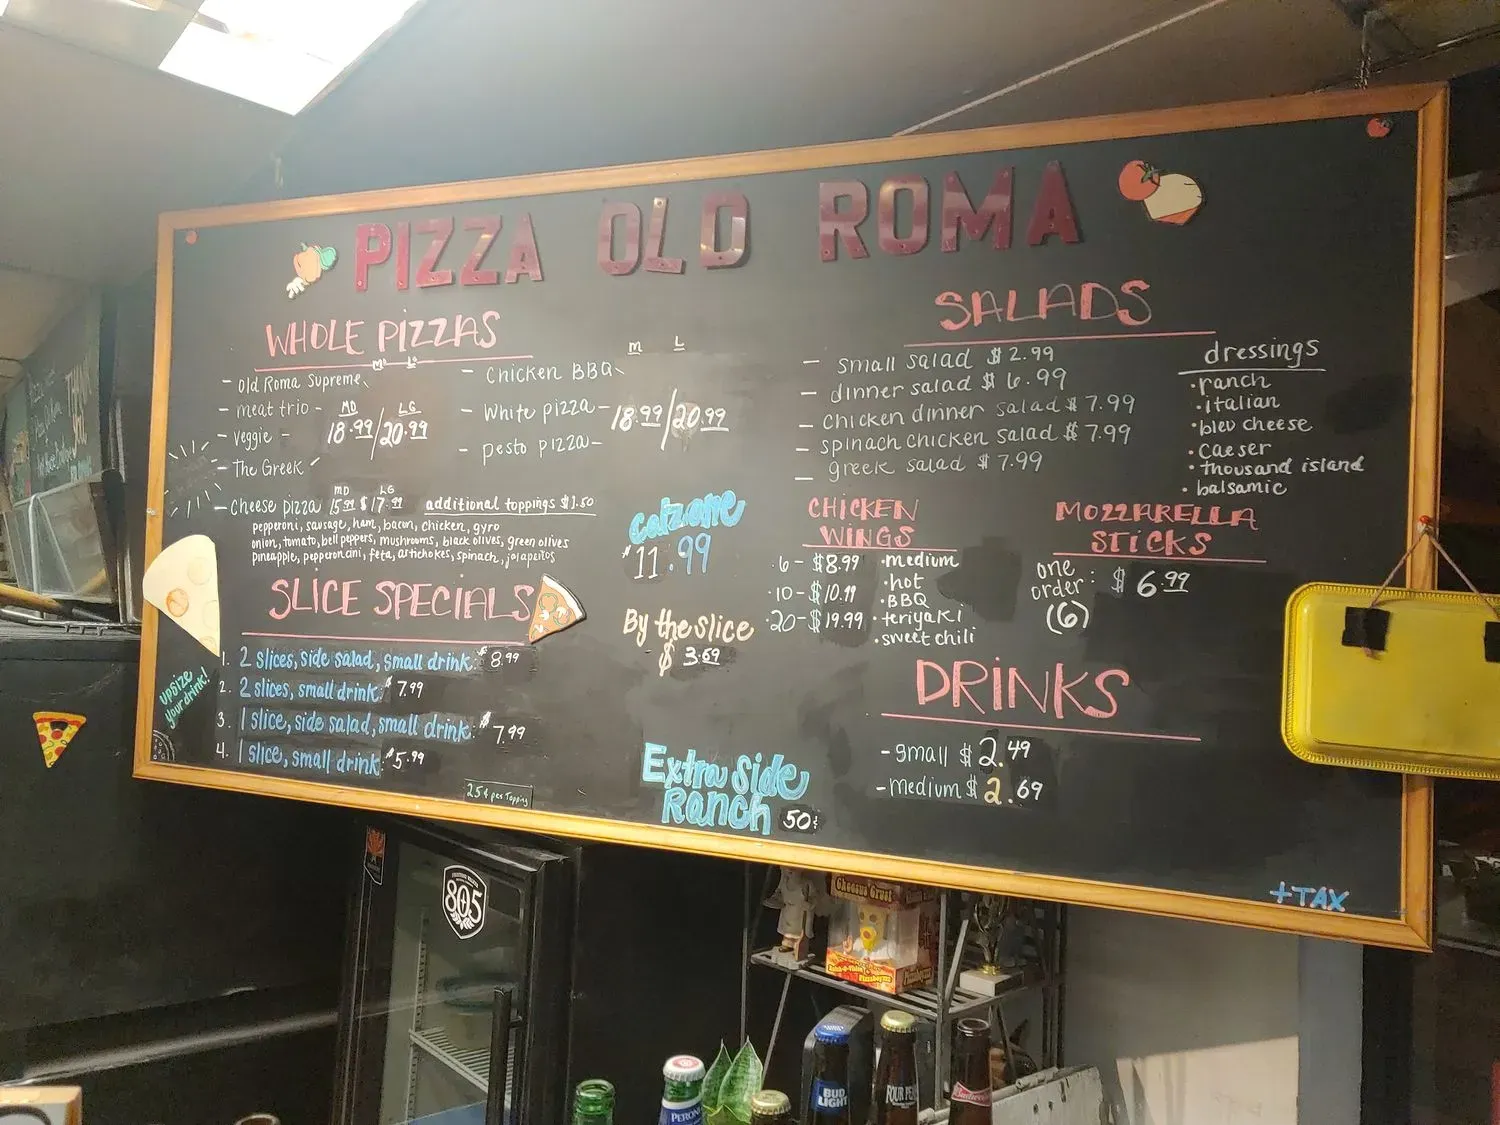 PIZZA OLD ROMA
WHOLE PIZZAS
M L
- Old Roma Supreme
- meat trio -
- veggie -
- The Greek
MD LG
18.99/20.99
M L
- Chicken BBQ
- White pizza -
- pesto pizza -
18.99/20.99
MD LG
- Cheese pizza 15.99 $17.99 additional toppings $1.50
pepperoni, sausage, ham, bacon, chicken, gyro
onion, tomato, bell peppers, mushrooms, black olives, green olives
pineapple, pepperoncini, feta, artichokes, spinach, jalapeños
SLICE SPECIALS
1. 2 slices, side salad, small drink: $8.99
2. 2 slices, small drink: $7.99
3. 1 slice, side salad, small drink: $7.99
4. 1 slice, small drink: $5.99
upsize
your drink!
25¢ per Topping
Calzone
$11.99
By the slice
$3.69
Extra Side
Ranch 50¢
SALADS
- small salad $2.99
- dinner salad $6.99
- chicken dinner salad $7.99
- spinach chicken salad $7.99
- greek salad $7.99
dressings
·ranch
·italian
·bleu cheese
·caeser
·thousand island
·balsamic
CHICKEN
WINGS
·6 - $8.99
·10 - $10.99
·20 - $19.99
·medium
·hot
·BBQ
·teriyaki
·sweet chili
MOZZARELLA
STICKS
one
order: $6.99
(6)
DRINKS
- small $2.49
- medium $2.69
+TAX
805
Cheesus Crust
BUD
LIGHT
PERONI